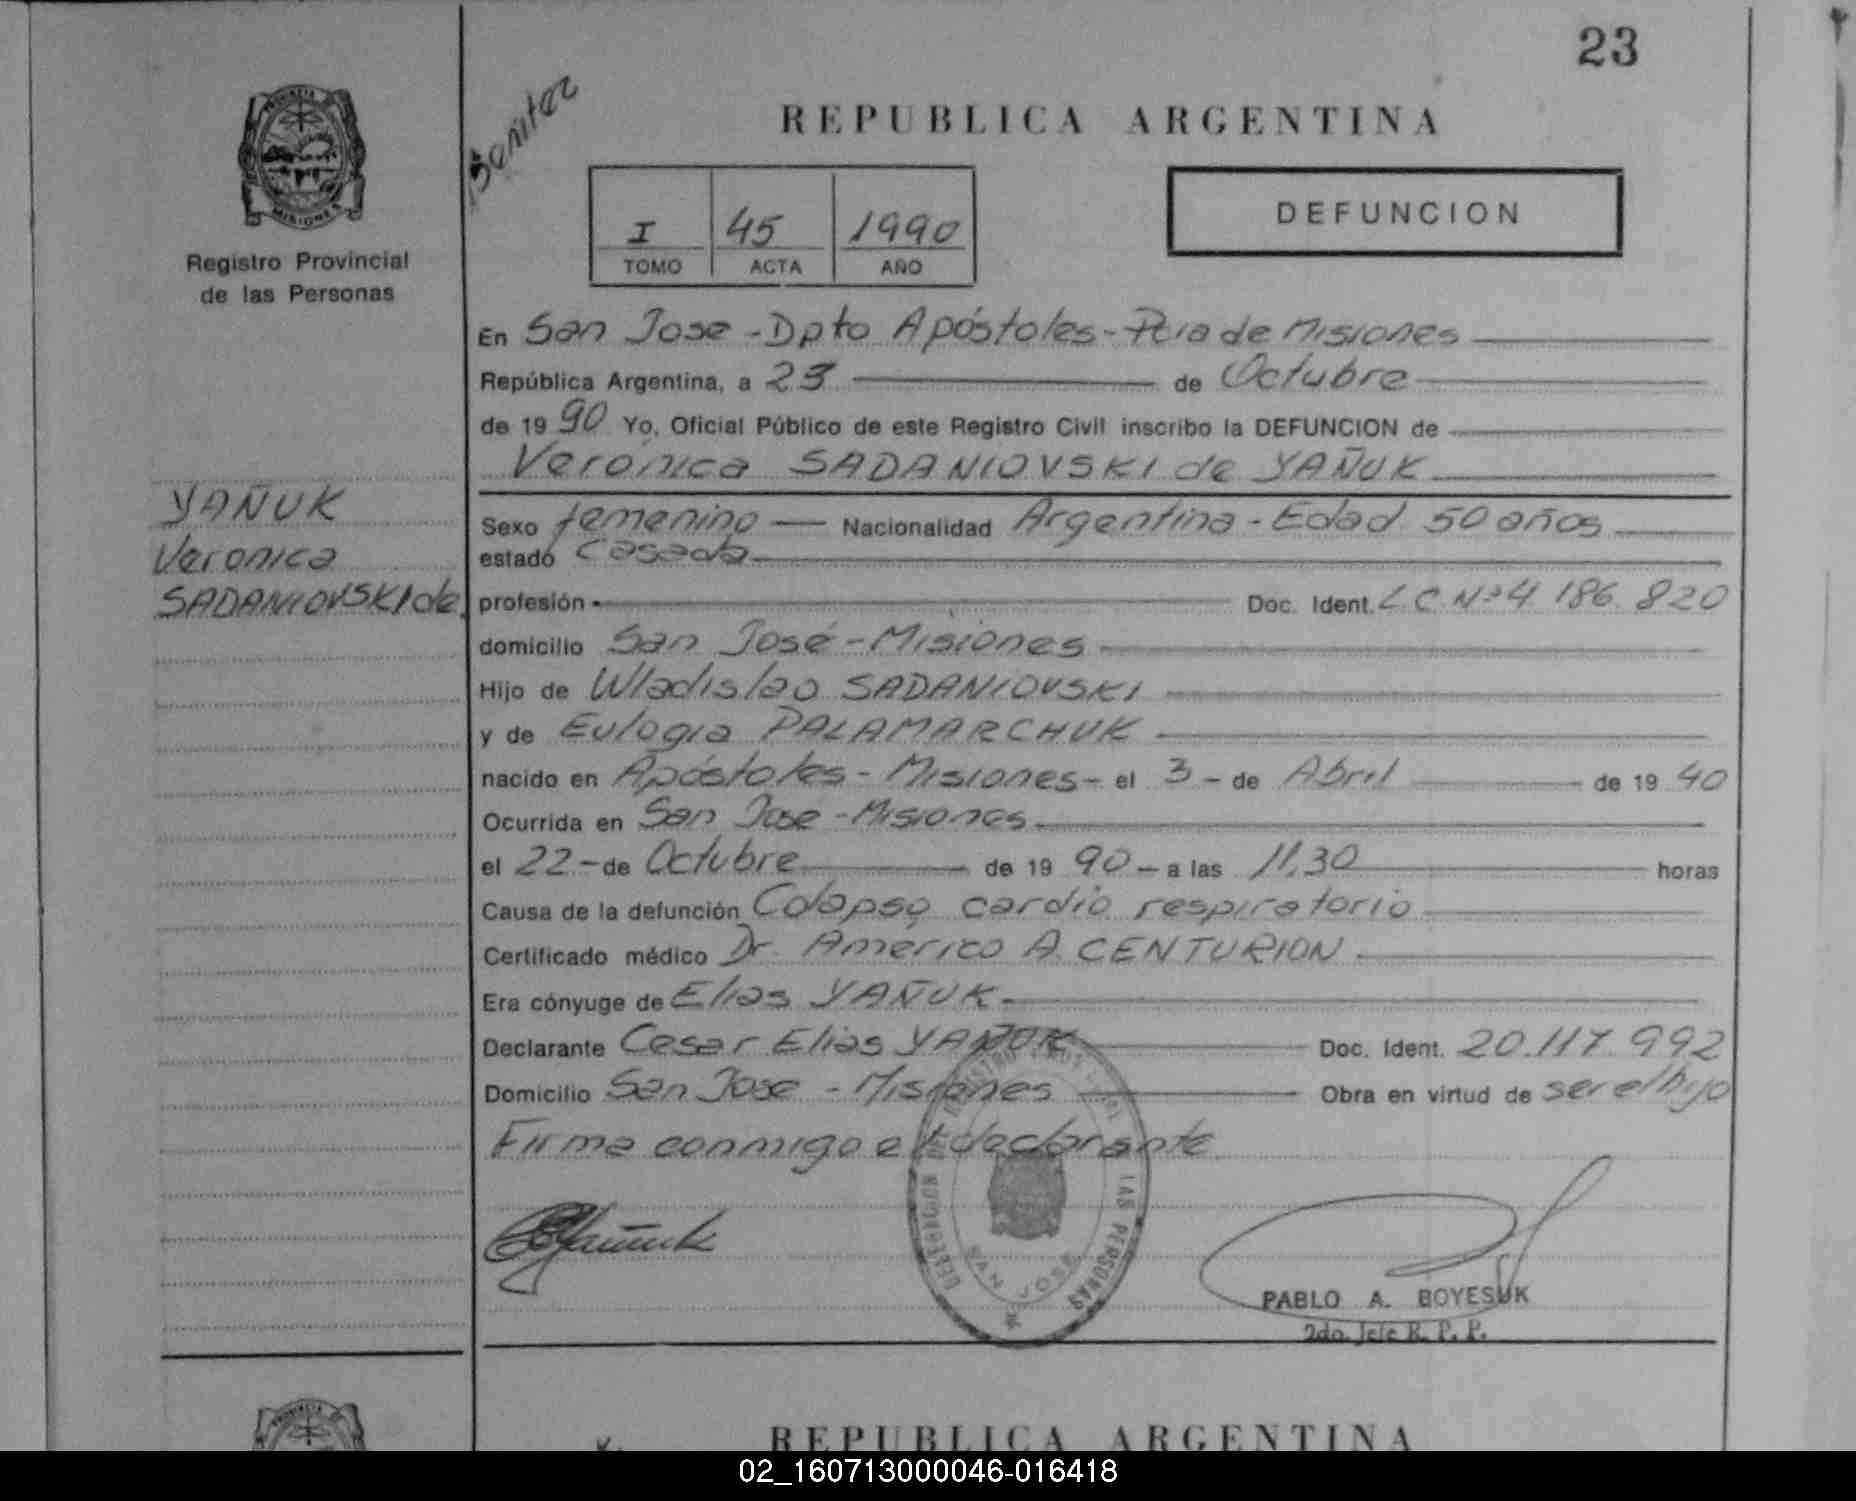 23
Benitez
REPUBLICA ARGENTINA
PROVINCIA
MISIONES
Registro Provincial
de las Personas
I 45 1990
TOMO ACTA AÑO
DEFUNCION
En San Jose - Dpto Apóstoles - Pcia de Misiones
República Argentina, a 23 de Octubre
de 1990 Yo, Oficial Público de este Registro Civil inscribo la DEFUNCION de
Verónica SADANIOVSKI de YAÑUK
YAÑUK
Veronica
SADANIOVSKI de
Sexo femenino — Nacionalidad Argentina - Edad 50 años
estado casada
profesión Doc. Ident. L C Nº 4 186.820
domicilio San José - Misiones
Hijo de Wladislao SADANIOVSKI
y de Eulogia PALAMARCHUK
nacido en Apóstoles - Misiones - el 3 - de Abril de 1940
Ocurrida en San Jose - Misiones
el 22 - de Octubre de 1990 - a las 11,30 horas
Causa de la defunción Colapso cardio respiratorio
Certificado médico Dr. Américo A. CENTURION
Era cónyuge de Elias YAÑUK
Declarante Cesar Elias YAÑUK Doc. Ident. 20.117.992
Domicilio San Jose - Misiones Obra en virtud de ser el hijo
Firma conmigo el declarante
Yañuk
LAS PERSONAS
SAN JOSE
PABLO A. BOYESUK
2do. Jefe R. P. P.
PROVINCIA
REPUBLICA ARGENTINA
02_160713000046-016418